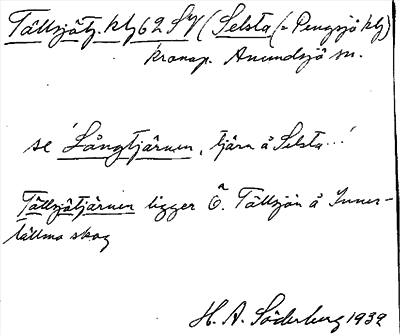 Tällsjötj. kbl 62 SV (Selsta (= Pengsjö kbl)
kronop. Anundsjö sn.
se 'Långtjärnen, tjärn å Selsta...'
Tällsjötjärnen ligger Ö. Tällsjön å Inner-
tällmo skog
H. A. Söderberg 1939